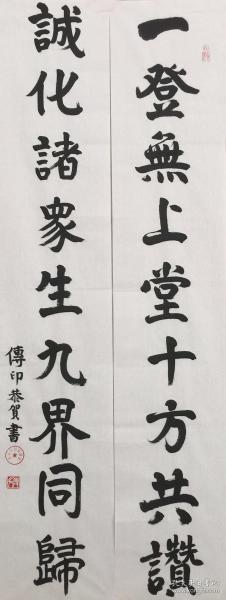 一登無上堂十方共讚
誠化諸眾生九界同歸
傳印恭賀書